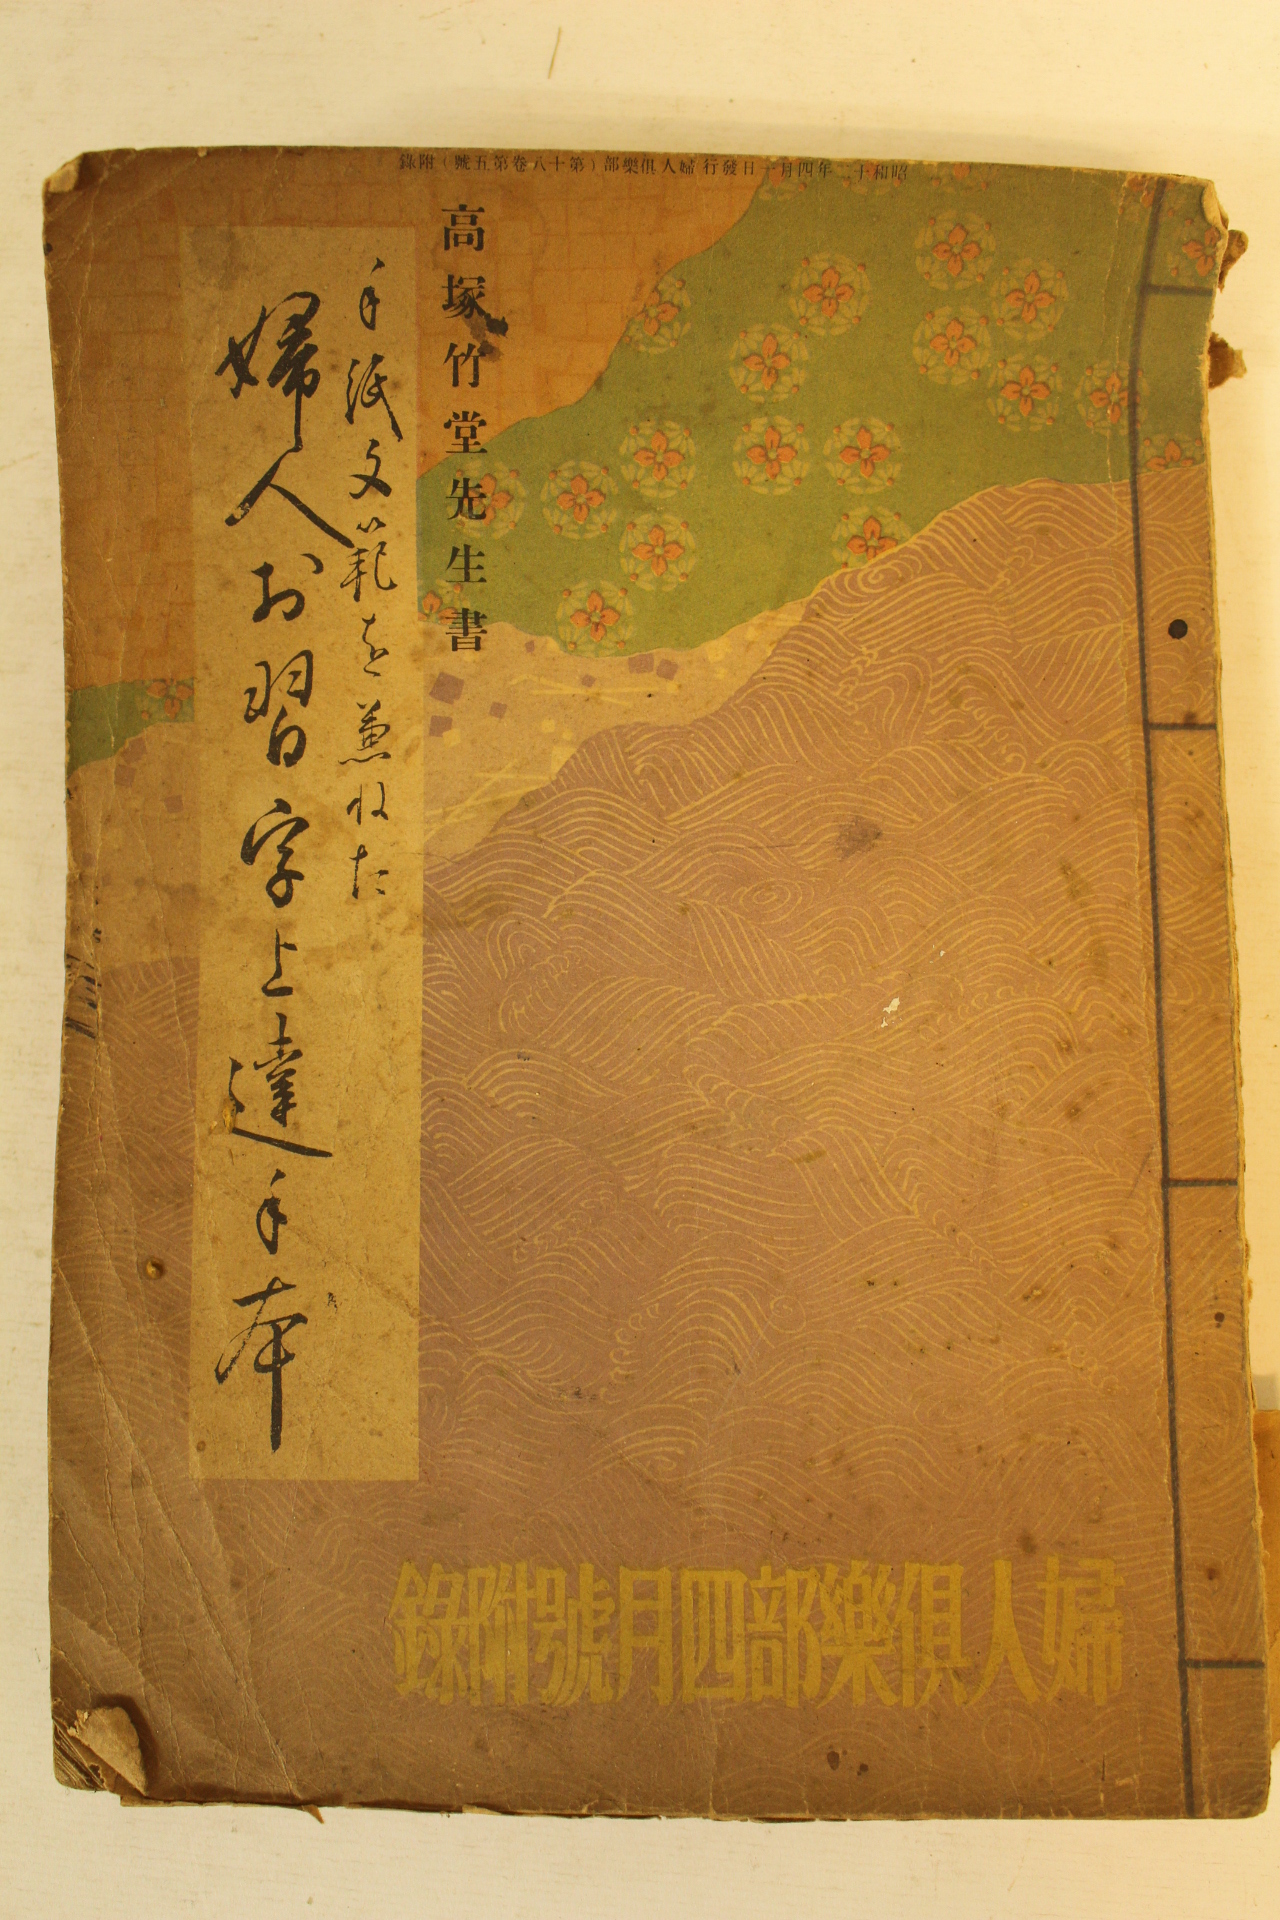 昭和十二年四月一日發行 婦人俱樂部(第十八卷第五號)附錄
高塚竹堂先生書
手紙文範を兼ねた
婦人お習字上達手本
婦人俱樂部四月號附錄